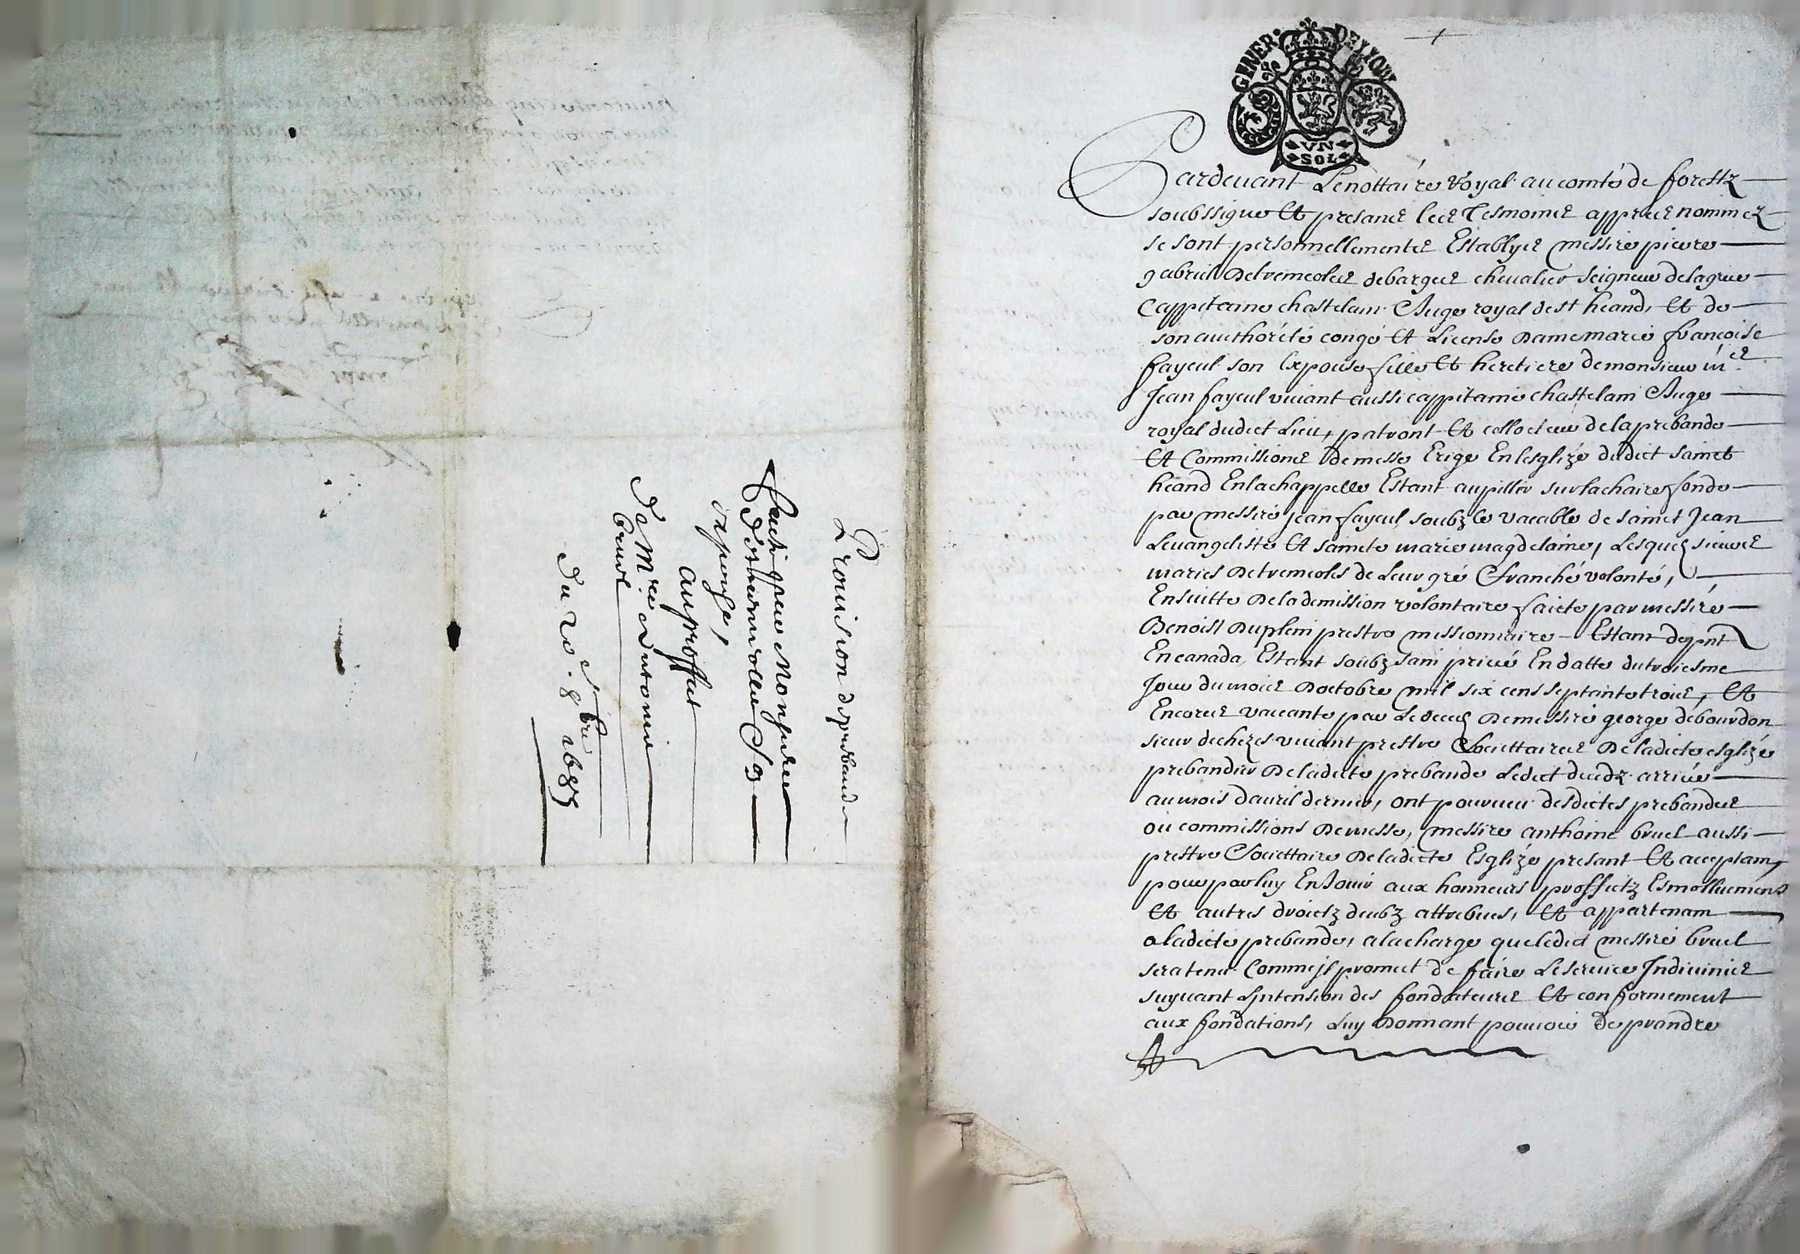 Prouision de prebande
faicte par Monsieur
expouze,
au proffict
de Mre Antoine
Bruel
du 20e. 8bre 1685
GENER DE LYON
VN
SOL
Pardeuant Le nottaire Royal au comté de forestz
soubssigné et presance les Tesmoins appres nommez
se sont personnellement Establys messire pierre
gabriel De tremeoles de barges chevalier seigneur de la grue
Cappitaine chastelain Juge royal de st heand, et de
son authorité congé et License Dame marie francoise
fayeul son Expouse fille et heretiere de monsieur me
Jean fayeul viuant aussi cappitaine chastelain Juge
royal dudict Lieu, patront et collecteur de la prebande
et Commissions de messe Erigé En lesglize dudict sainct
heand En la chappelle Estant au pillier sur la chaire fondé
par messire jean fayeul soubz le vacable de sainct Jean
Leuangeliste et saincte marie magdelaine, Lesquelz sieurs
maries De tremeoles de Leur gré & franche volonté,
Ensuitte De la demission volontaire faicte par messire
Benoist Duplein prestre missionnaire Estant de pnt
En canada, Estant soubz sain priué En datte du troiesme
Jour du mois Doctobre mil six cens septante trois, et
Encores vacante par Le decez De messire george de bourdon
sieur de chezes viuant prestre Societtaire De ladicte esglize
prebandier De ladicte prebande Ledict decedz arriué
au mois Dauril dernier, ont pourueu desdictes prebandes
ou commissions De messe, messire anthoine bruel aussi
prestre Societtaire De ladicte Esglize presant et acceptant,
pour par luy En Jouir aux honneurs proffictz Esmolluments
et autres droictz deubz attribues, et appartenant
a ladicte prebande, a la charge que ledict messire bruel
sera tenu Comme Jl promet de faire Le seruice Indiuinis
suyuant Lintension des fondateurs et conformement
aux fondations, Luy Donnant pouuoir De prandre